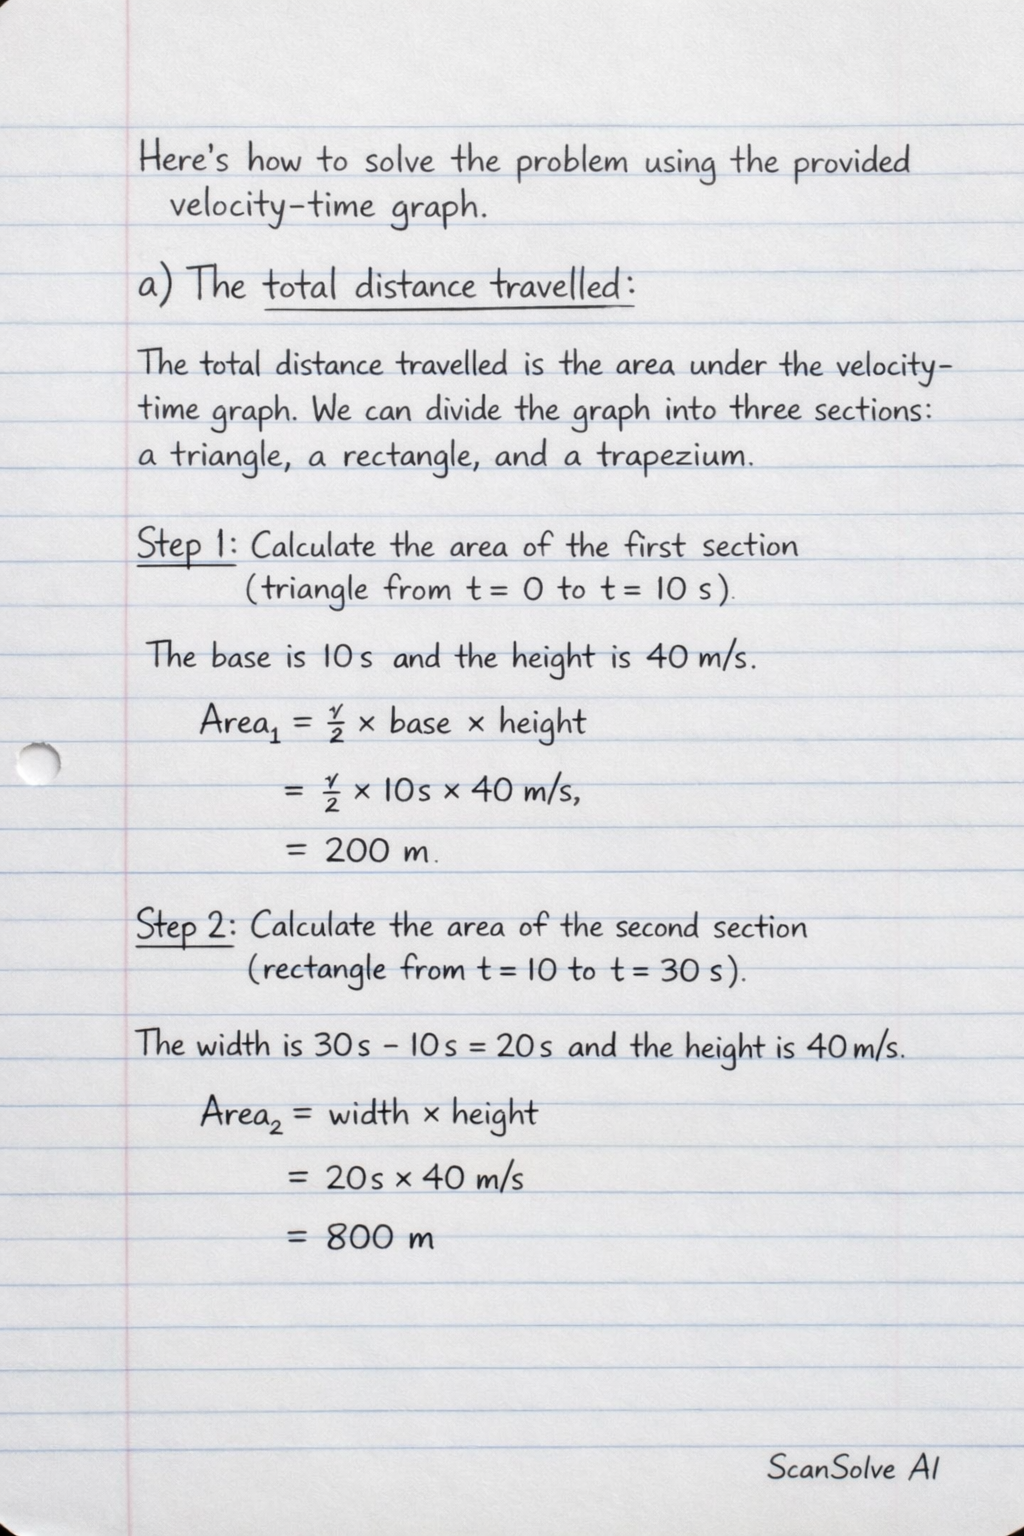 Here's how to solve the problem using the provided
velocity-time graph.
a) The total distance travelled:
The total distance travelled is the area under the velocity-
time graph. We can divide the graph into three sections:
a triangle, a rectangle, and a trapezium.
Step 1: Calculate the area of the first section
(triangle from t = 0 to t = 10 s).
The base is 10 s and the height is 40 m/s.
Area₁ = ½ × base × height
= ½ × 10s × 40 m/s,
= 200 m.
Step 2: Calculate the area of the second section
(rectangle from t = 10 to t = 30 s).
The width is 30s - 10s = 20s and the height is 40 m/s.
Area₂ = width × height
= 20s × 40 m/s
= 800 m
ScanSolve AI